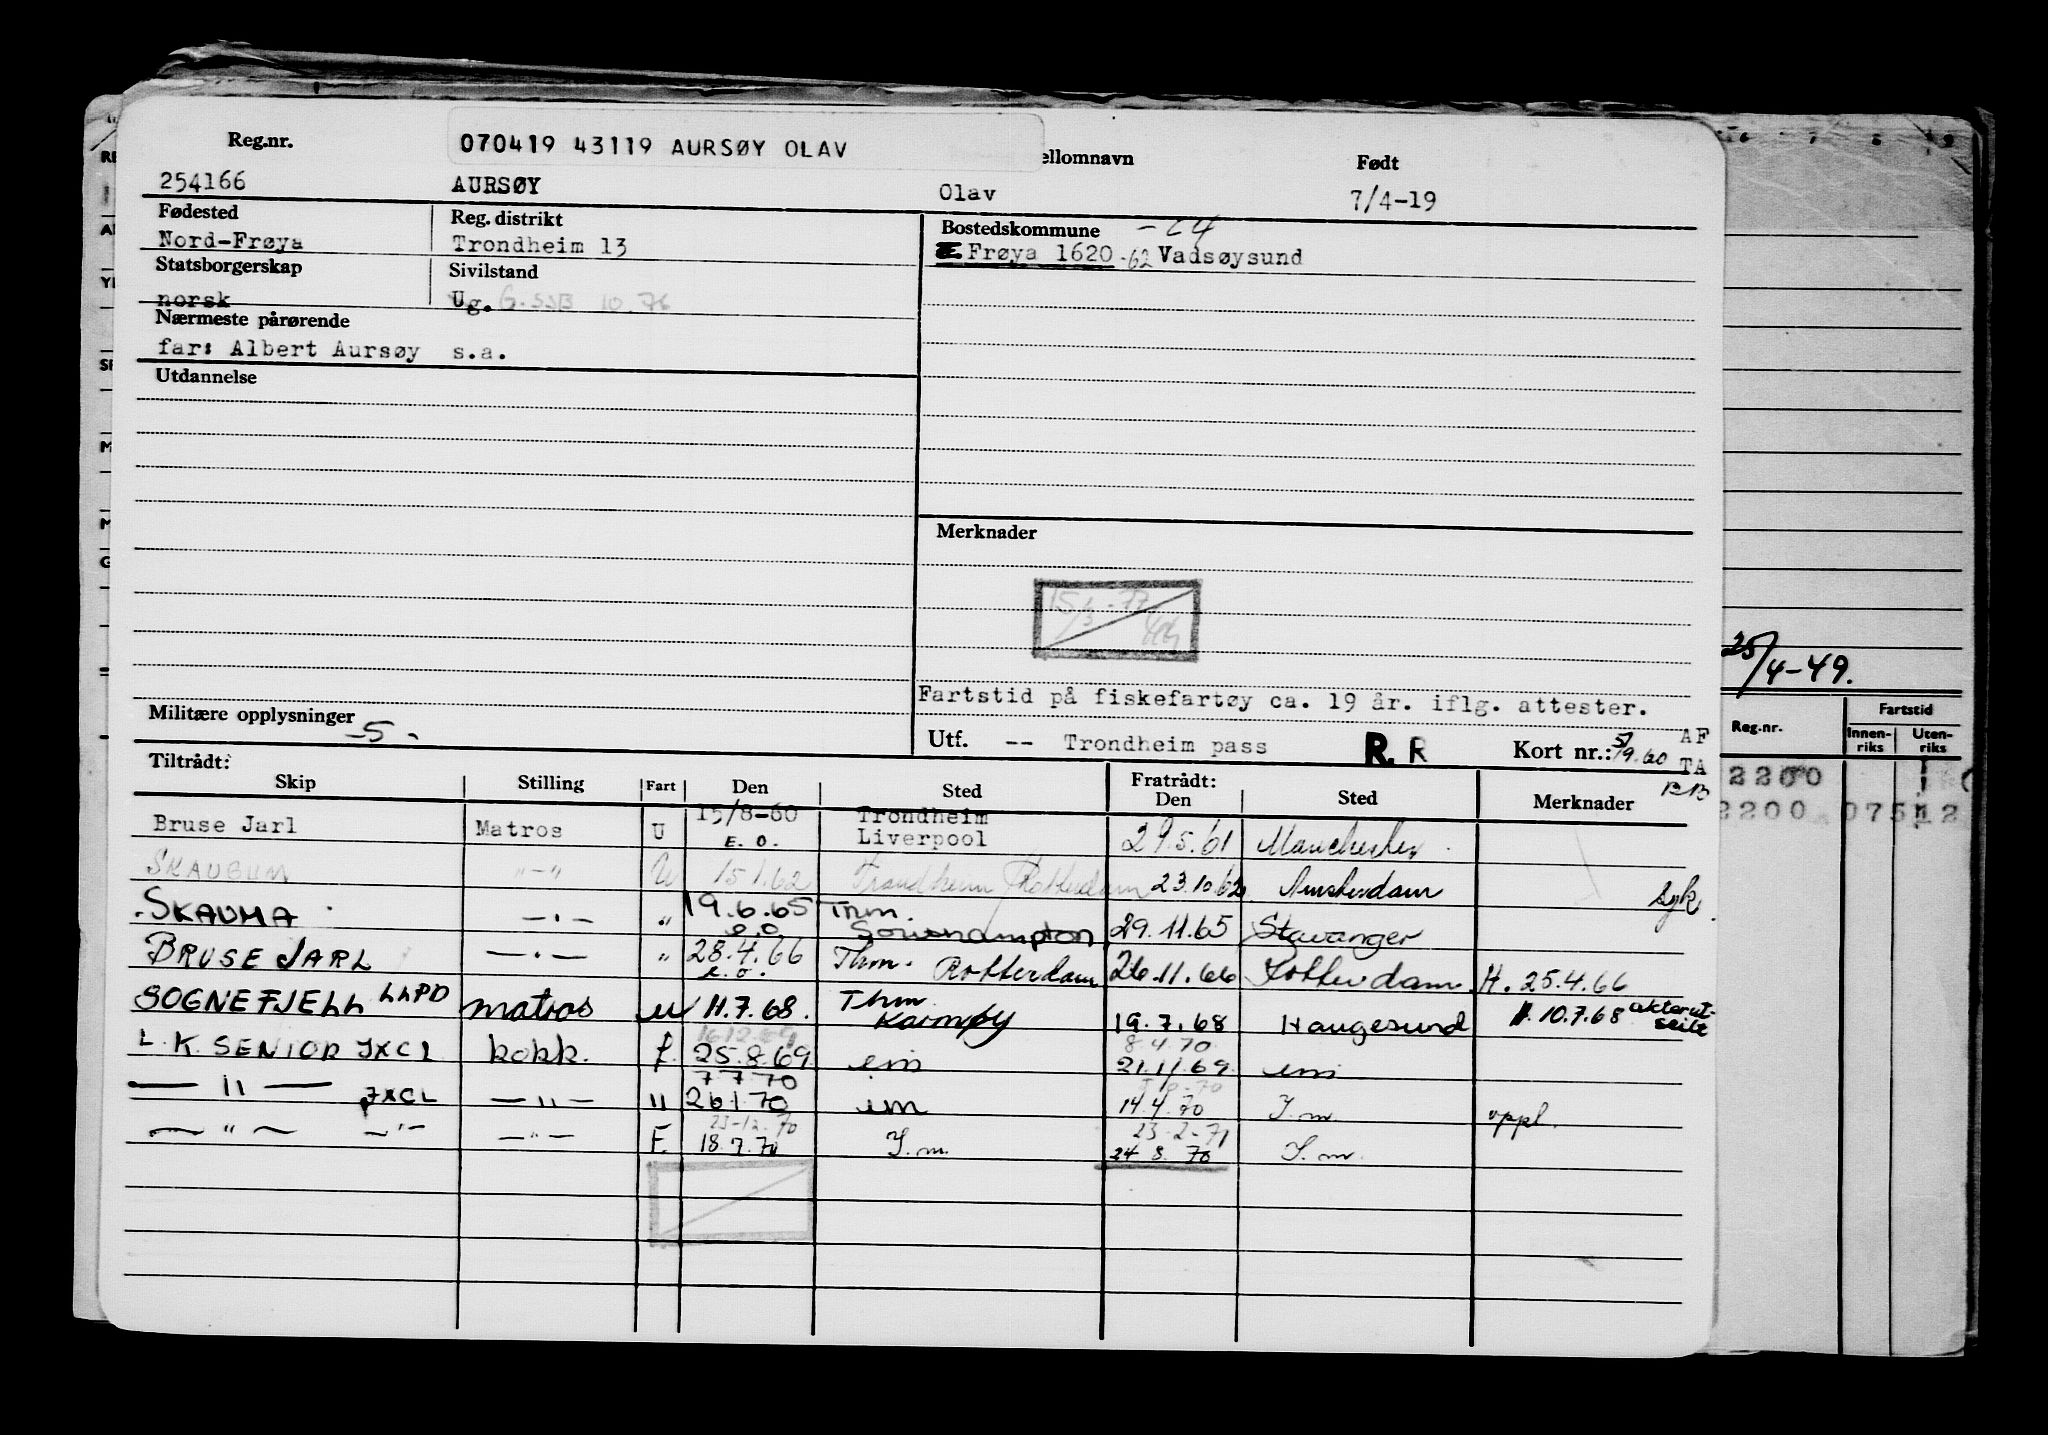 070419 43119 AURSØY OLAV
Reg.nr. ellomnavn Født
254166 AURSØY Olav 7/4-19
Fødested Reg. distrikt Bostedskommune
Nord-Frøya Trondheim 13 Frøya 1620 -62 Vadsøysund
Statsborgerskap Sivilstand
norsk Ug. G. SSB 10.76
Nærmeste pårørende
far: Albert Aursøy s.a.
Utdannelse
Merknader
15/3-77
25/4-49.
Fartstid på fiskefartøy ca. 19 år. iflg. attester.
Militære opplysninger -5-
Utf. -- Trondheim pass R. R Kort nr.: 5/9.60 AF
TA
Reg.nr. Fartstid
Innenriks Utenriks
2200
2200 075
Tiltrådt: Fratrådt:
Skip Stilling Fart Den Sted Den Sted Merknader
Bruse Jarl Matros U 15/8-60 Trondheim
E.O. Liverpool 29.5.61 Manchester
SKAUGUM -"- U 15.1.62 Trondheim Rotterdam 23.10.62 Amsterdam syk.
SKAUMA -"- " 19.6.65 Trhm.
e.o Southampton 29.11.65 Stavanger
BRUSE JARL -"- " 28.4.66 Thm. Rotterdam 26.11.66 Rotterdam H. 25.4.66
e.o.
SOGNEFJELL LLPD matros u 11.7.68. Thm Karmøy 19.7.68 Haugesund 10.7.68
16.12.69 8.4.70
L.K. SENIOR JXCL kokk. f. 25.8.69 im 21.11.69 im
7.7.70
— " — JXCL — " — " 26.1.70 im 14.4.70 I.m. oppl.
23-12.70 23-2-71
— " — -"- -"- F. 18.7.70 I.m. 24.8.70 I.m.